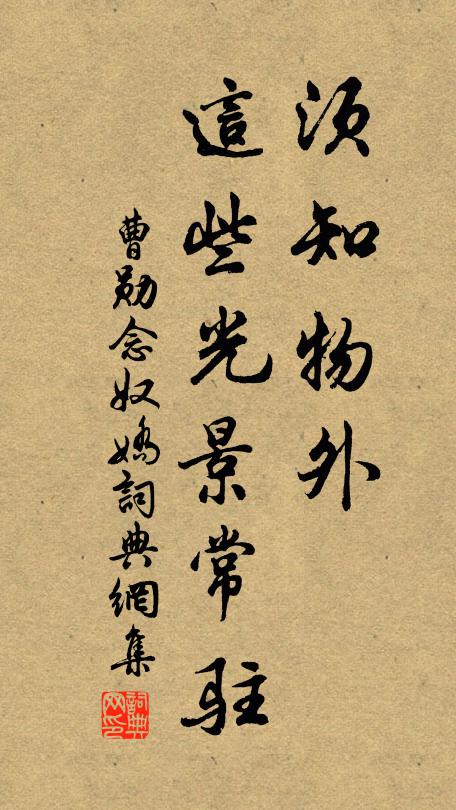 須知物外
這些光景常駐
曹勛念奴嬌詞典網集
詞典
网印